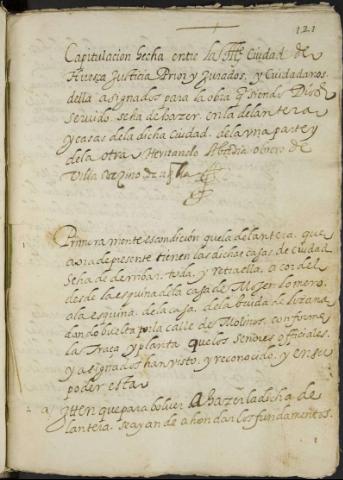 121
Capitulacion hecha entre la Ille Ciudad de
Huesca Justicia Prior y Jurados, y Ciudadanos
della asignados para la obra q siendo Dios
servido seha de hazer en la delantera
y casas de la dicha Ciudad, de la vna parte y
de la otra Abadia obrero de
Villa vezino della
Primeramente es condicion que la delantera, que
aora de presente tienen las dichas casas de Ciudad
Seha de derribar toda, y
desde la esquina de la casa de Mosen Romero
ala esquina de la casa, de la biuda de
dando buelta por la calle de Molinos, conforme
la Traça y planta que los Señores officiales
y asignados han visto, y reconocido, y en su
poder esta
2 Itten que para bolver a hazer la dicha de
lantera, se ayan de ahondar los fundamentos